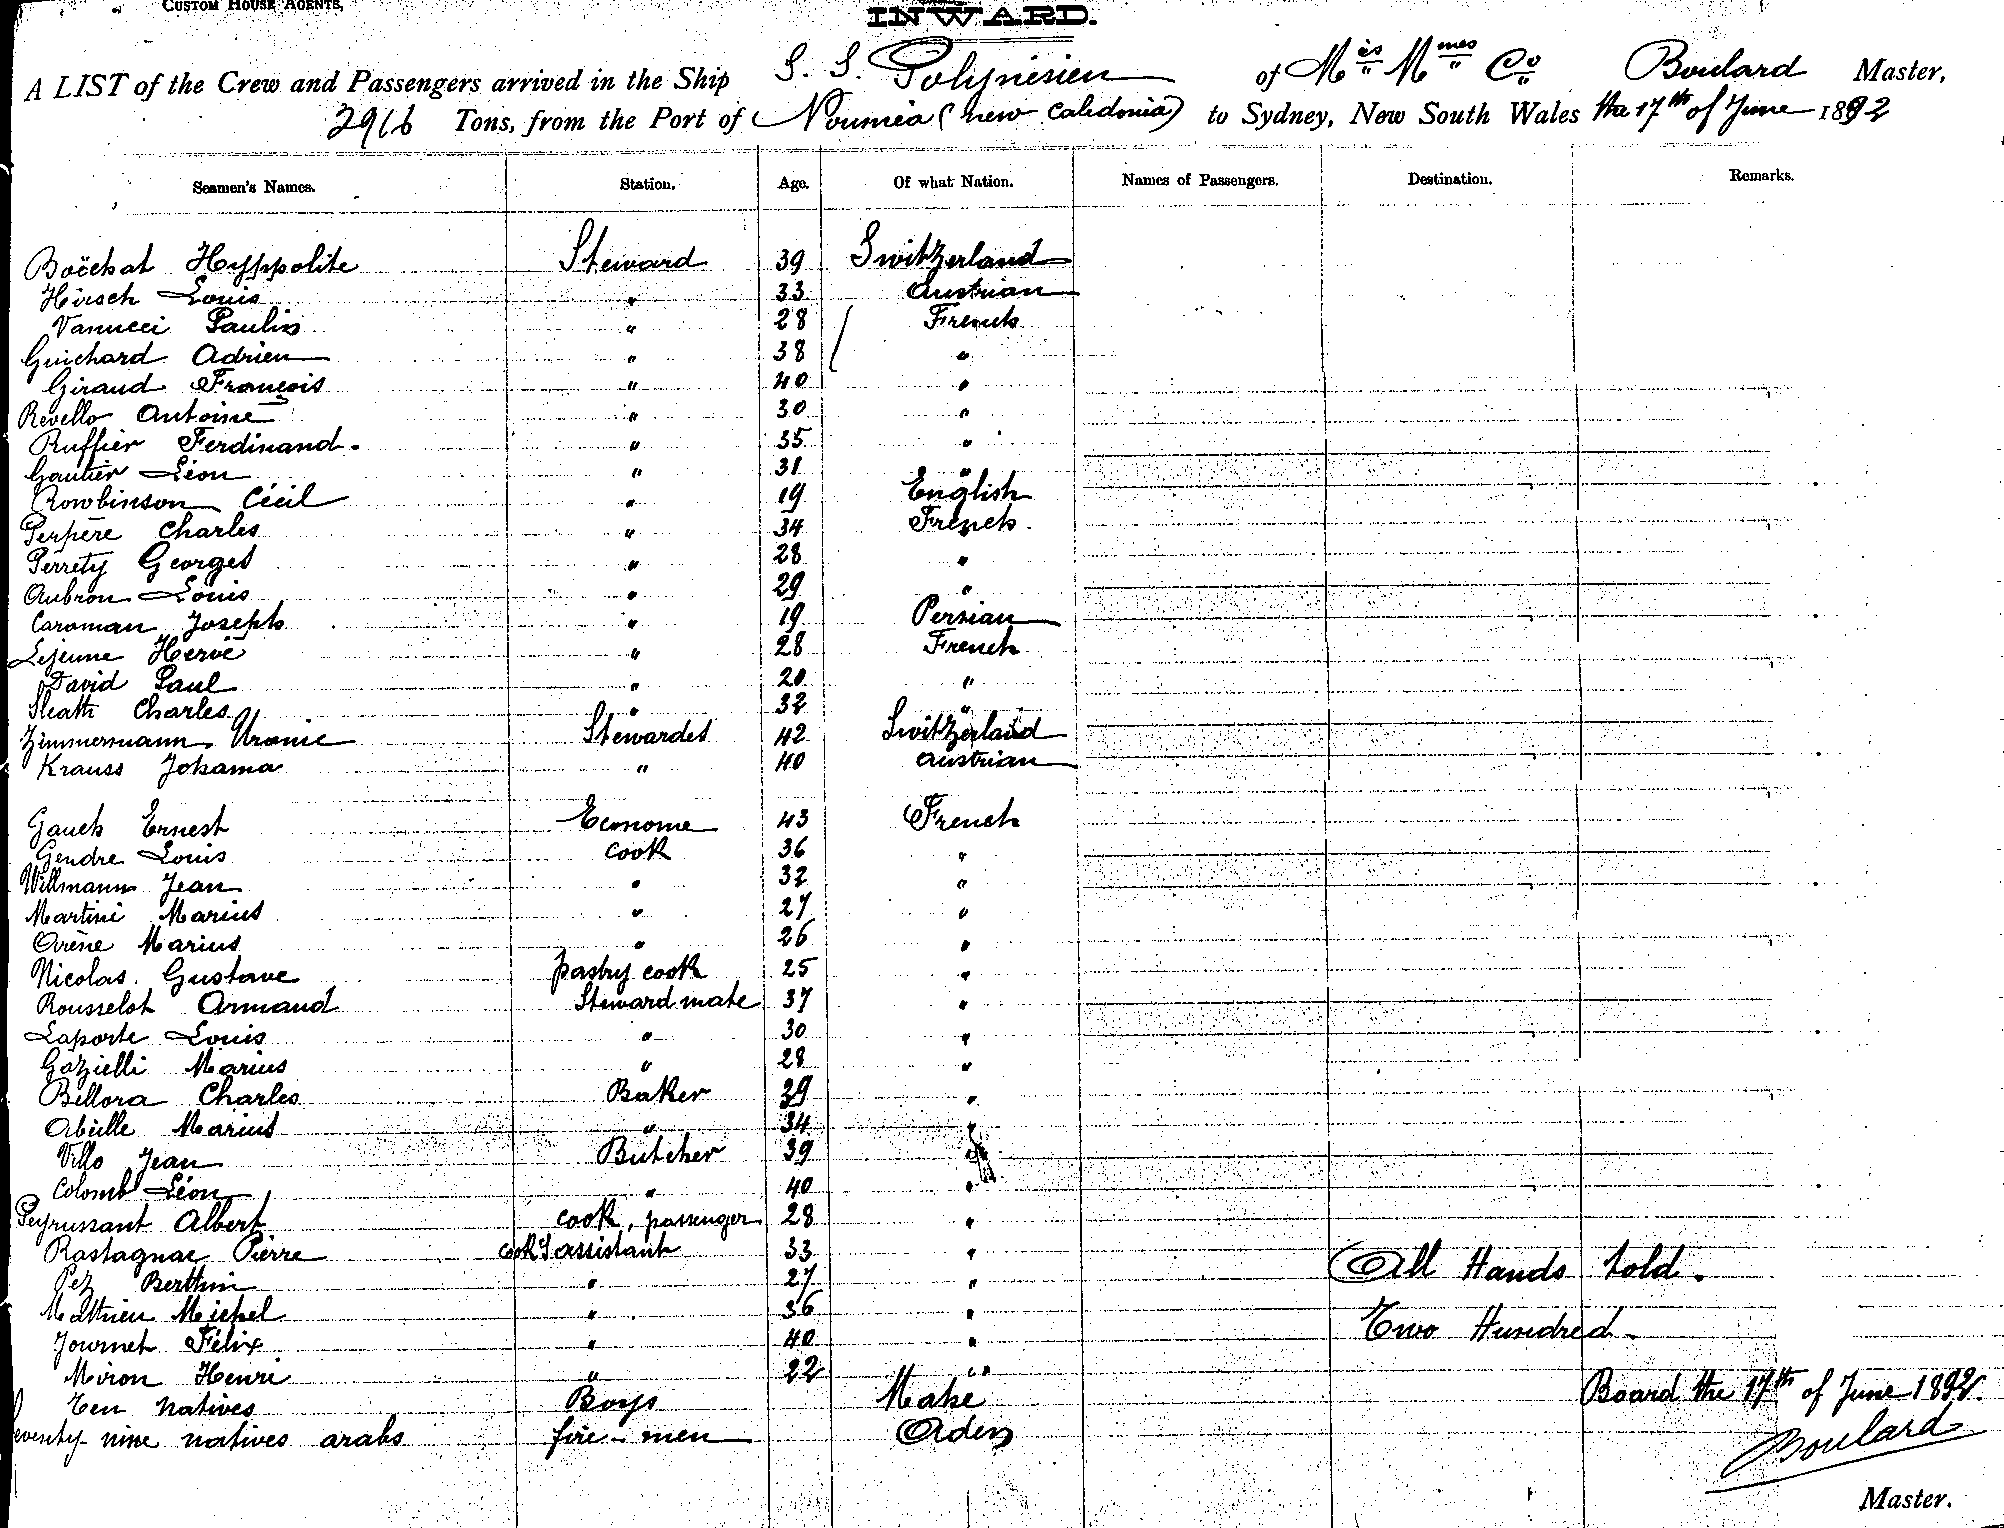 CUSTOM HOUSE AGENTS,
INWARD.
A LIST of the Crew and Passengers arrived in the Ship S. S. Polynésien of M^es M^mes Co Boulard Master,
2916 Tons, from the Port of Nouméa (new Caledonia) to Sydney, New South Wales the 17th of June 1892
Seamen's Names. Station. Age. Of what Nation. Names of Passengers. Destination. Remarks.
Boëchat Hyppolite Steward 39 Switzerland
Hirsch Louis " 33 Austrian
Vanucci Paulin " 28 French
Guichard Adrien " 38 "
Giraud François " 40 "
Revello Antoine " 30 "
Ruffier Ferdinand. " 35 "
Gautier Léon " 31 "
Rowbinson Cécil " 19 English
Perpère Charles " 34 French
Perrety Georges " 28 "
Aubron Louis " 29 "
Caroman Joseph " 19 Persian
Lejeune Hervé " 28 French
David Paul " 20 "
Sleath Charles " 32 "
Zimmermann Uranie Stewardes 42 Switzerland
Krauss Johama " 40 Austrian
Gauch Ernest Econome 43 French
Gendre Louis cook 36 "
Willmann Jean " 32 "
Martini Marius " 27 "
Arène Marius " 26 "
Nicolas Gustave pastry cook 25 "
Rousselot Armand Steward mate 37 "
Laporte Louis " 30 "
Gozielli Marius " 28 "
Bellora Charles Baker 39 "
Abeille Marius " 34 "
Villo Jean Butcher 39 "
Colomb Léon " 40 "
Peyrussant Albert cook, passenger 28 "
Rastagnac Pierre cook's assistant 33 "
Pez Berthin " 27 " All Hands told.
Mathieu Michel " 36 "
Journet Félix " 40 " Two Hundred
Miron Henri " 22 "
Ten natives Boys Mahe Board the 17th of June 1892.
seventy-nine natives arabs fire-men Aden
Boulard
Master.